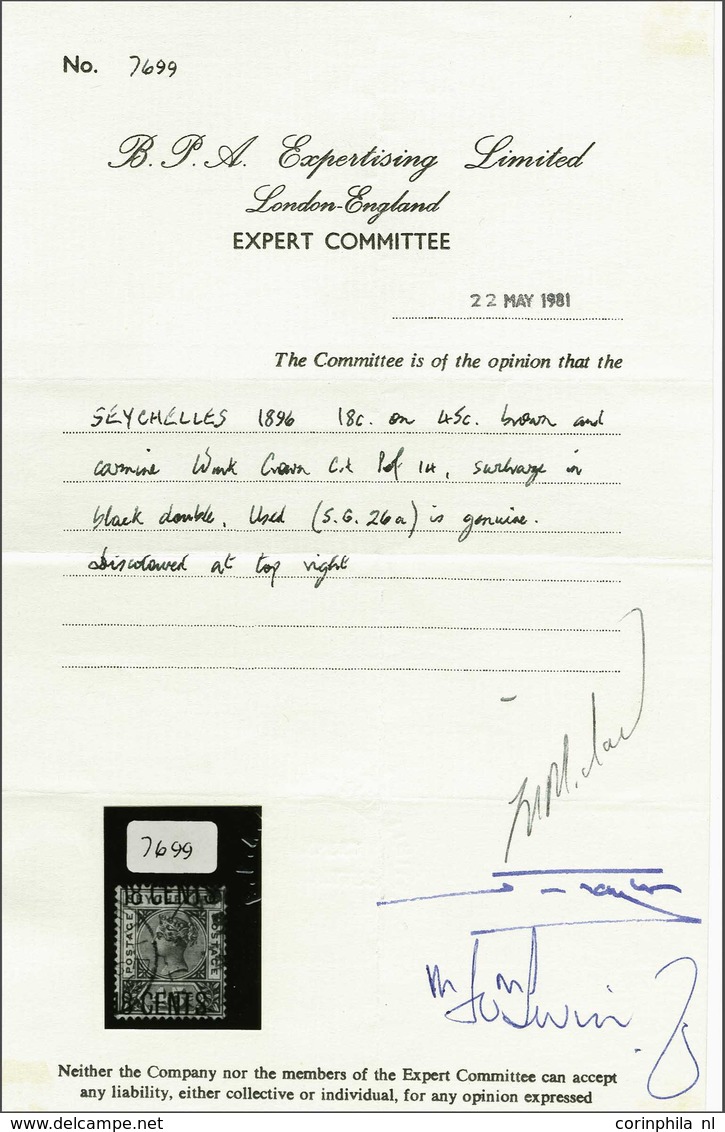 No. 7699
B. P. A. Expertising Limited
London-England
EXPERT COMMITTEE
22 MAY 1981
The Committee is of the opinion that the
SEYCHELLES 1896 18c. on 45c. brown and
carmine Wmk Crown CA Perf 14, surcharge in
black double, Used (S.G. 26a) is genuine.
discoloured at top right
7699
18 CENTS
POSTAGE
POSTAGE
8 CENTS
Neither the Company nor the members of the Expert Committee can accept
any liability, either collective or individual, for any opinion expressed
corinphila nl